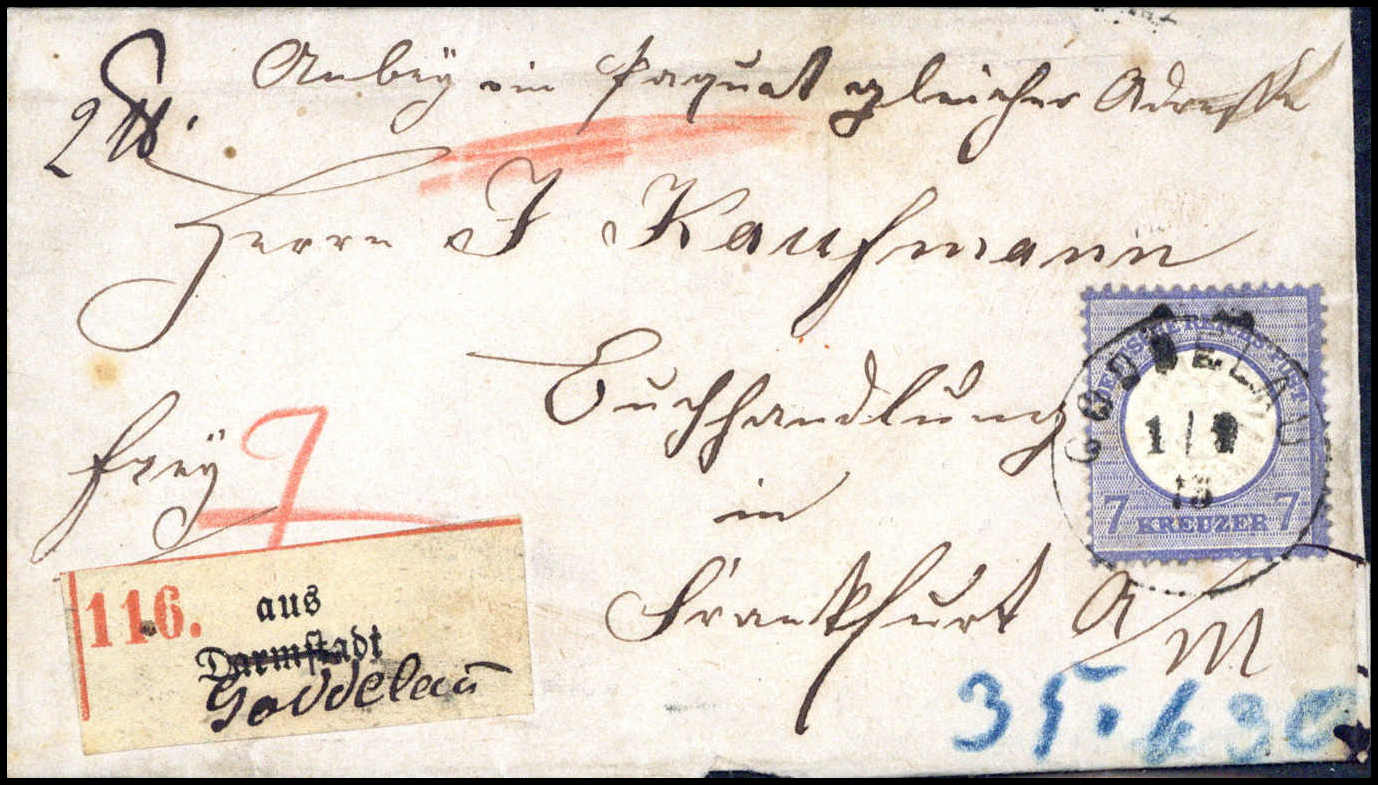 Anbey ein Paquet gleicher Adresse
2 ℔.
Herrn J Kaufmann
Buchhandlung
in
Frankfurt A/M
frey 7
116. aus
Darmstadt
Goddelau
DEUTSCHE REICHS-POST
7 KREUZER 7
GODDELAU
1
73
35.